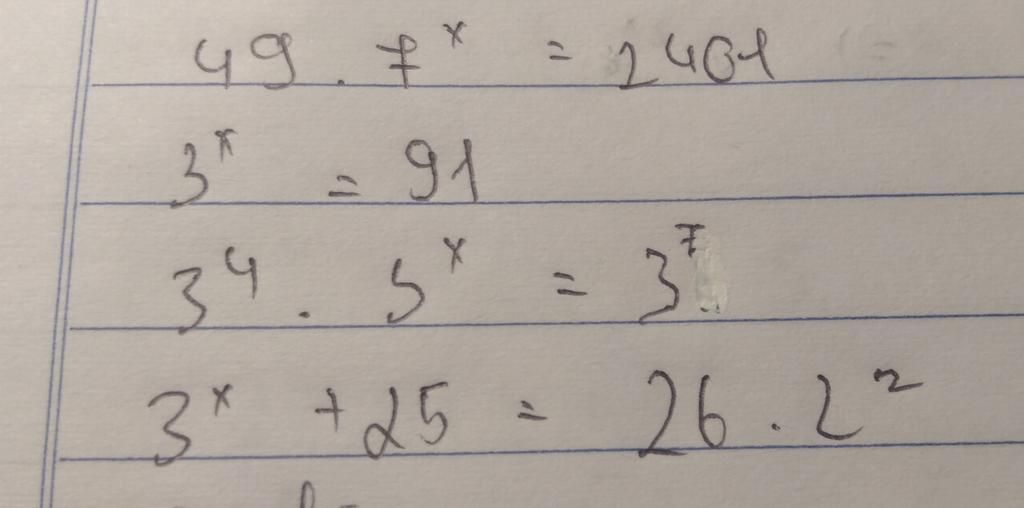 49 . 7ˣ = 2401
3ˣ = 91
3⁴ . 5ˣ = 3⁷
3ˣ + 25 = 26 . 2²